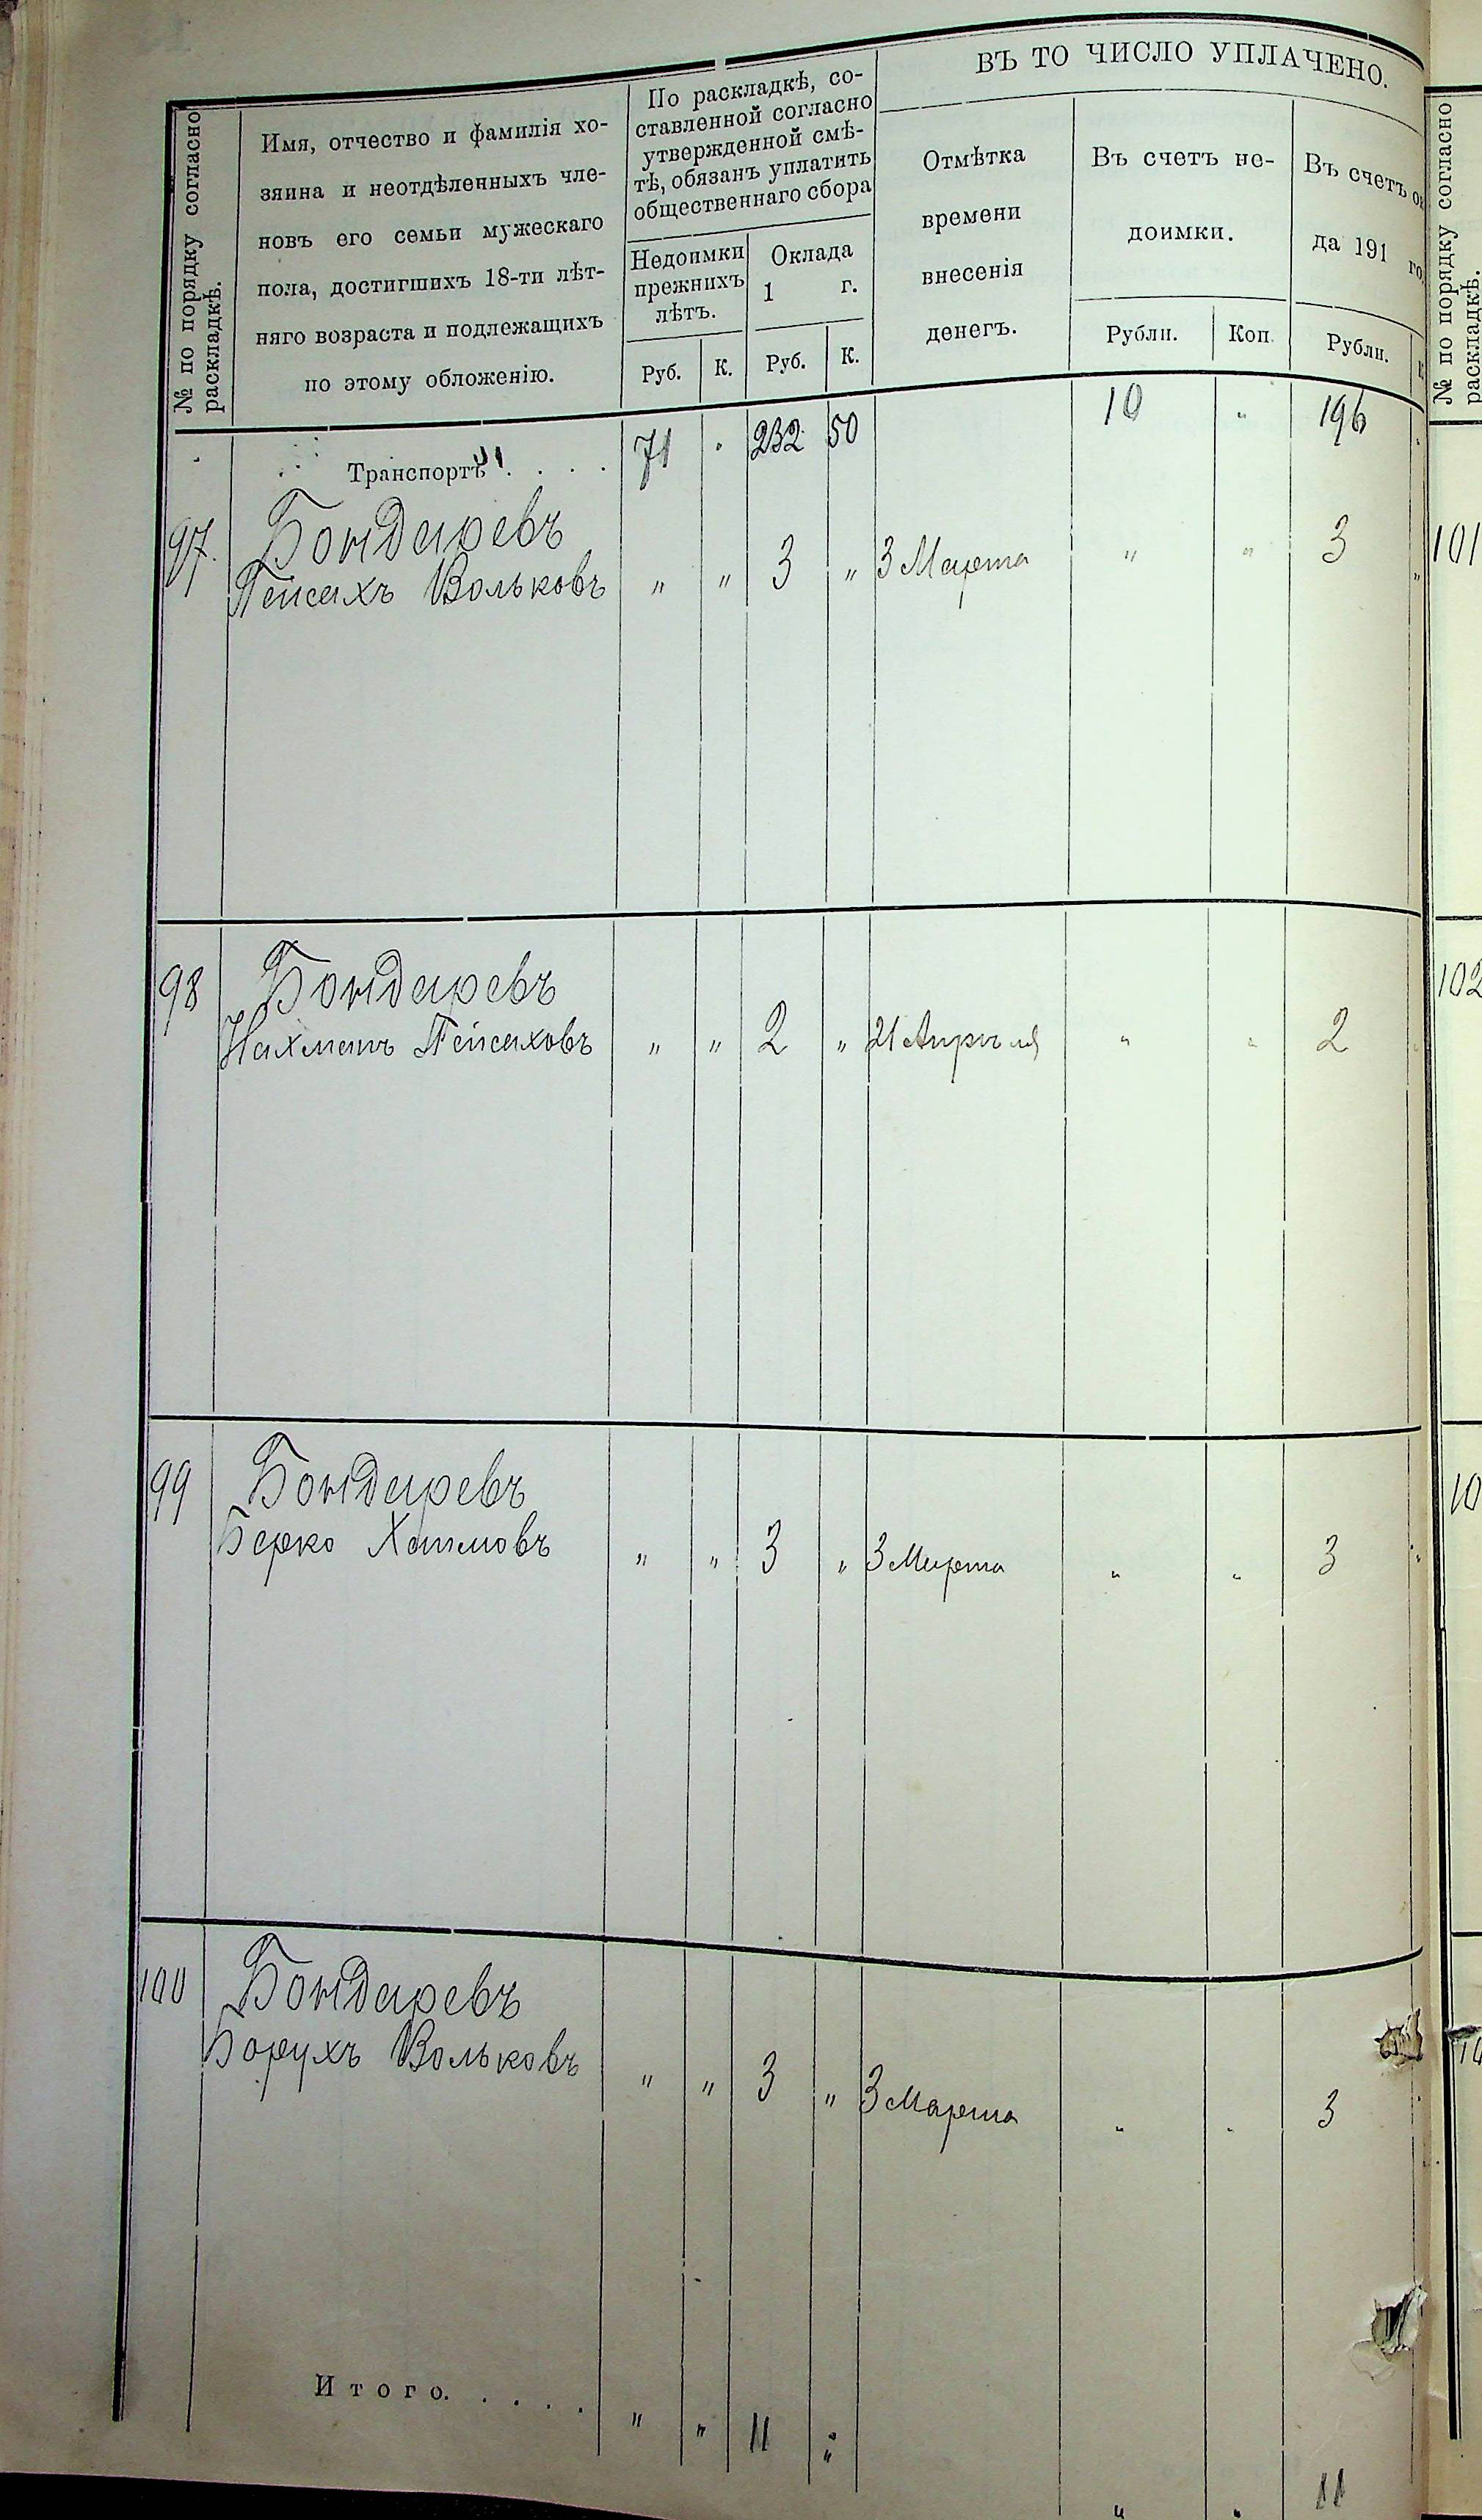 ВЪ ТО ЧИСЛО УПЛАЧЕНО.
№ по порядку согласно
раскладкѣ.
Имя, отчество и фамилія хо-
зяина и неотдѣленныхъ чле-
новъ его семьи мужескаго
пола, достигшихъ 18-ти лѣт-
няго возраста и подлежащихъ
по этому обложенію.
По раскладкѣ, со-
ставленной согласно
утвержденной смѣ-
тѣ, обязанъ уплатить
общественнаго сбора
Недоимки
прежнихъ
лѣтъ.
Оклада
1 г.
Руб. К. Руб. К.
Отмѣтка
времени
внесенія
денегъ.
Въ счетъ не-
доимки.
Рубли. Коп.
Въ счетъ ок
да 191 го
Рубли.
№ по порядку согласно
раскладкѣ.
Транспортъ . . . . 71 " 232 50 10 " 196
97. Бондаревъ
Пейсахъ Вольковъ " " 3 " 3 Марта " " 3 "
98 Бондаревъ
Нахманъ Пейсаховъ " " 2 " 21 Апрѣля " " 2
99 Бондаревъ
Берко Хаимовъ " " 3 " 3 Марта " " 3 "
100 Бондаревъ
Борухъ Вольковъ " " 3 " 3 Марта " " 3
Итого. . . . . " " 11 " " " 11
101
102
10